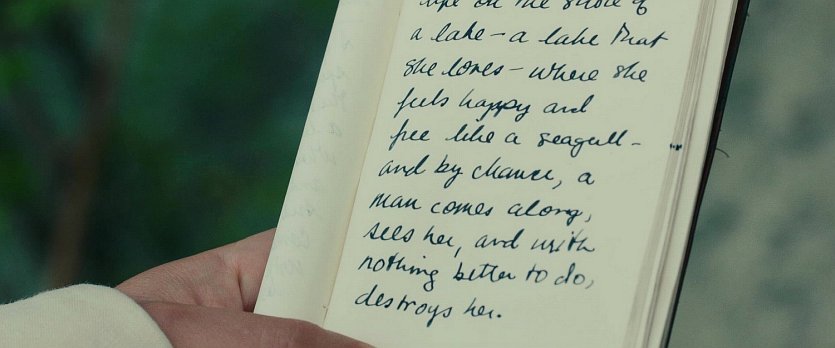 life on the shore of
a lake – a lake that
she loves – where she
feels happy and
free like a seagull –
and by chance, a
man comes along,
sees her, and with
nothing better to do,
destroys her.